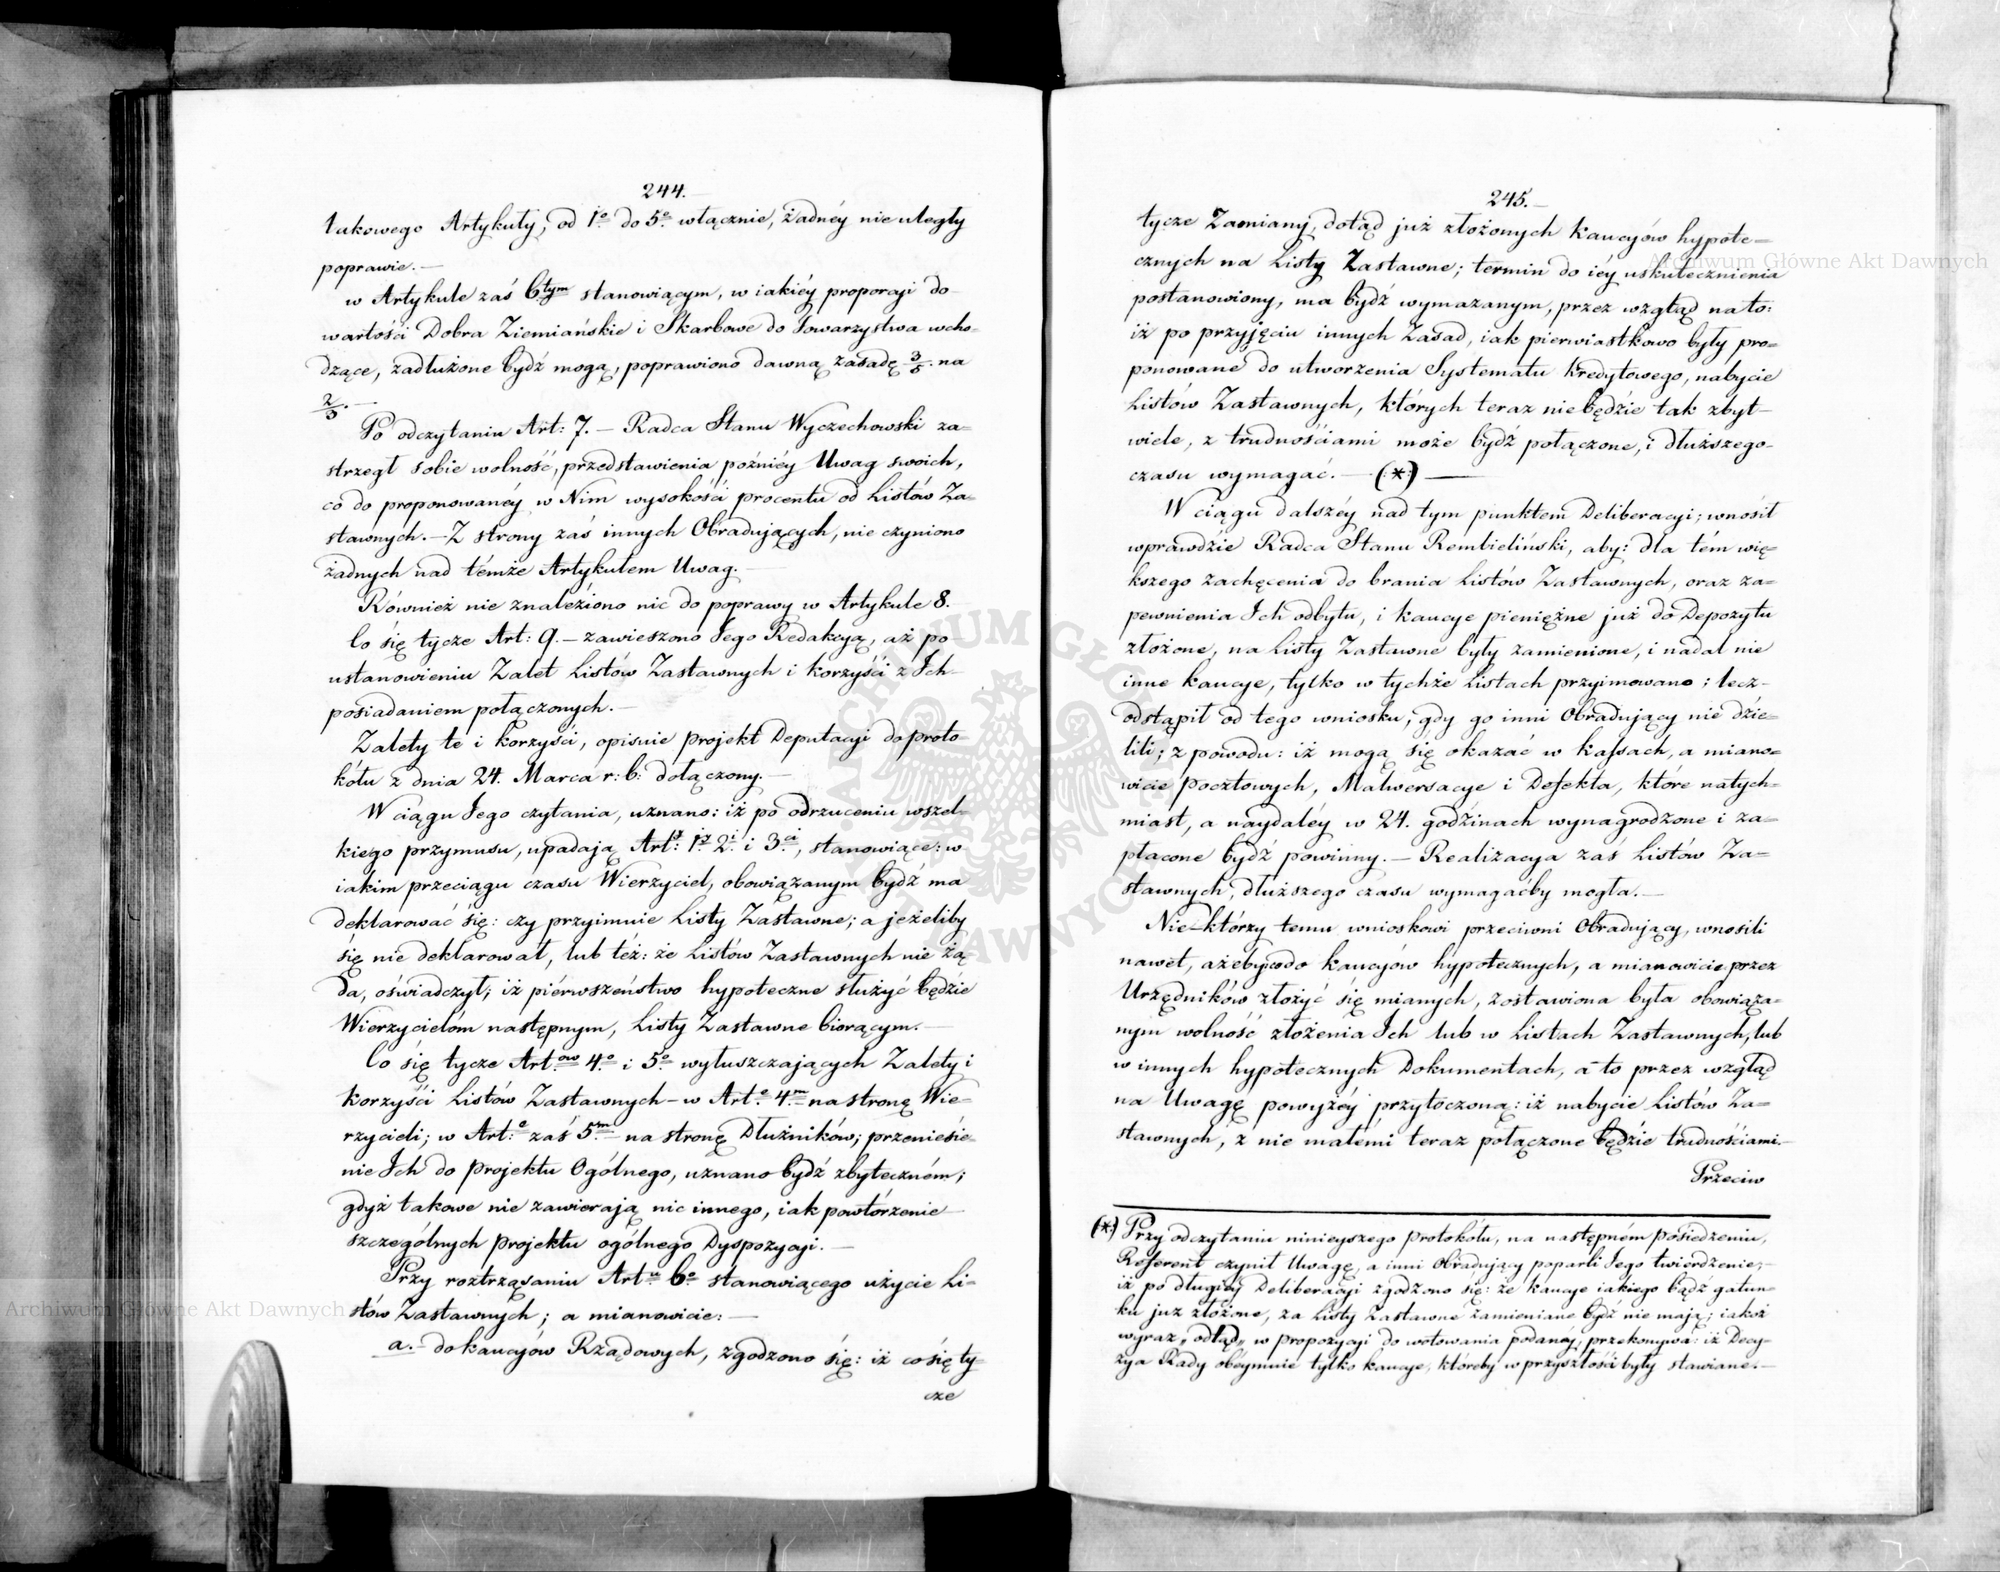 244.
takowego Artykuły, od 1º do 5º włącznie, żadnéy nie uległy
poprawie. —
w Artykule zaś 6tym stanowiącym, w iakiéy proporcyi do
wartości Dobra Ziemiańskie i Skarbowe do Towarzystwa wcho-
dzące, zadłużone bydź mogą, poprawiono dawną zasadę 3/5. na
2/3. —
Po odczytaniu Art: 7. — Radca Stanu Wyczechowski za-
strzegł sobie wolność, przedstawienia poźniéy Uwag swoich,
co do proponowanéy w Nim wysokości procentu od Listów Za-
stawnych. — Z strony zaś innych Obradujących, nie czyniono
żadnych nad témże Artykułem Uwag. —
Również nie znaleziono nic do poprawy w Artykule 8.
Co się tycze Art: 9. — zawieszono Jego Redakcyą, aż po
ustanowieniu Zalet Listów Zastawnych i korzyści z Ich
posiadaniem połączonych. —
Zalety te i korzyści, opisuie projekt Deputacyi do proto-
kółu z dnia 24. Marca r: b: dołączony. —
W ciągu Jego czytania, uznano: iż po odrzuceniu wszel-
kiego przymusu, upadają Artły: 1y 2i i 3ci, stanowiące: w
iakim przeciągu czasu Wierzyciel, obowiązanym bydź ma
deklarować się: czy przyimuie Listy Zastawne; a jeżeliby
się nie deklarował, lub też: że Listów Zastawnych nie żą-
da, oświadczył; iż pierwszeństwo hypoteczne służyć będzie
Wierzycielóm następnym, Listy Zastawne biorącym. —
Co się tycze Artów 4º i 5º wyłuszczających Zalety i
korzyści Listów Zastawnych — w Arte 4m na stronę Wie-
rzycieli; w Art:e zaś 5m — na stronę Dłużników; przeniesie-
nie Ich do projektu Ogólnego, uznano bydź zbyteczném;
gdyż takowe nie zawierają nic innego, iak powtórzenie
szczególnych projektu ogólnego Dyspozycyi. —
Przy roztrząsaniu Artu 6º stanowiącego użycie Li-
stów Zastawnych; a mianowicie: —
a. — do kaucyów Rządowych, zgodzono się: iż co się ty-
cze
245. —
tycze Zamiany, dotąd już złożonych kaucyów hypote-
cznych na Listy Zastawne; termin do iéy uskutecznienia
postanowiony, ma bydź wymazanym, przez wzgląd na to:
iż po przyjęciu innych Zasad, iak pierwiastkowo były pro-
ponowane do utworzenia Systematu kredytowego, nabycie
Listów Zastawnych, których teraz niebędzie tak zbyt
wiele, z trudnościami może bydź połączone, i dłuższego
czasu wymagać. — (*) —
W ciągu dalszéy nad tym punktem Deliberacyi; wnosił
wprawdzie Radca Stanu Rembieliński, aby: dla tém wię-
kszego zachęcenia do brania Listów Zastawnych, oraz za-
pewnienia Ich odbytu, i kaucye pieniężne już do Depozytu
złożone, na Listy Zastawne były zamienione, i nadal nie
inne kaucye, tylko w tychże Listach przyimowano; lecz
odstąpił od tego wniosku, gdy go inni Obradujący nie dzie-
lili; z powodu: iż mogą się okazać w kassach, a miano-
wicie Pocztowych, Malwersacye i Defekta, które natych-
miast, a naydaléy w 24. godzinach wynagrodzone i za-
płacone bydź powinny. — Realizacya zaś Listów Za-
stawnych, dłuższego czasu wymagaćby mogła. —
Nie-którzy temu wnioskowi przeciwni Obradujący, wnosili
nawet, ażeby co do kaucyów hypotecznych, a mianowicie przez
Urzędników złożyć się mianych, zostawiona była obowiąza-
nym wolność złożenia Ich lub w Listach Zastawnych, lub
w innych hypotecznych Dokumentach, a to przez wzgląd
na Uwagę powyżéy przytoczoną: iż nabycie Listów Za-
stawnych, z nie małémi teraz połączone będzie trudnościami. —
Przeciw
(*) Przy odczytaniu ninieyszego Protokółu, na następném posiedzeniu,
Referent czynił Uwagę, a inni Obradujący poparli Jego twierdzenie; —
iż po długiéy Deliberacyi zgodzono się: że kaucye iakiego bądź gatun-
ku już złożone, za Listy Zastawne zamieniane bydź nie mają; iakoż
wyraz „odtąd„ w propozycyi do wotowania podanéy, przekonywa: iż Decy-
zya Rady obéymuie tylko kaucye, któreby w przyszłości były stawiane. —
Archiwum Główne Akt Dawnych
Archiwum Główne Akt Dawnych